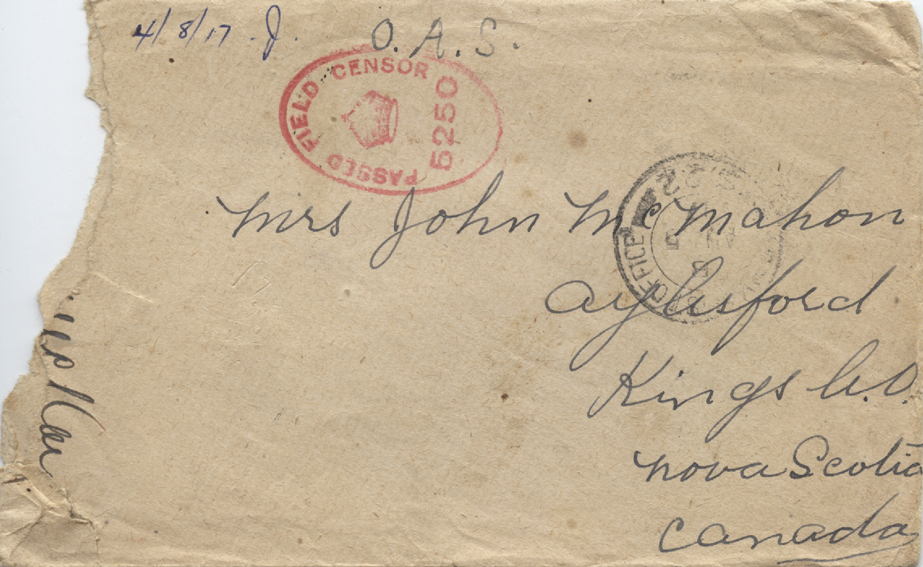 4/8/17 J. O.A.S.
PASSED FIELD CENSOR
5250
Mrs John McMahon
Aylesford
Kings Co.
Nova Scotia
Canada
OFFICE